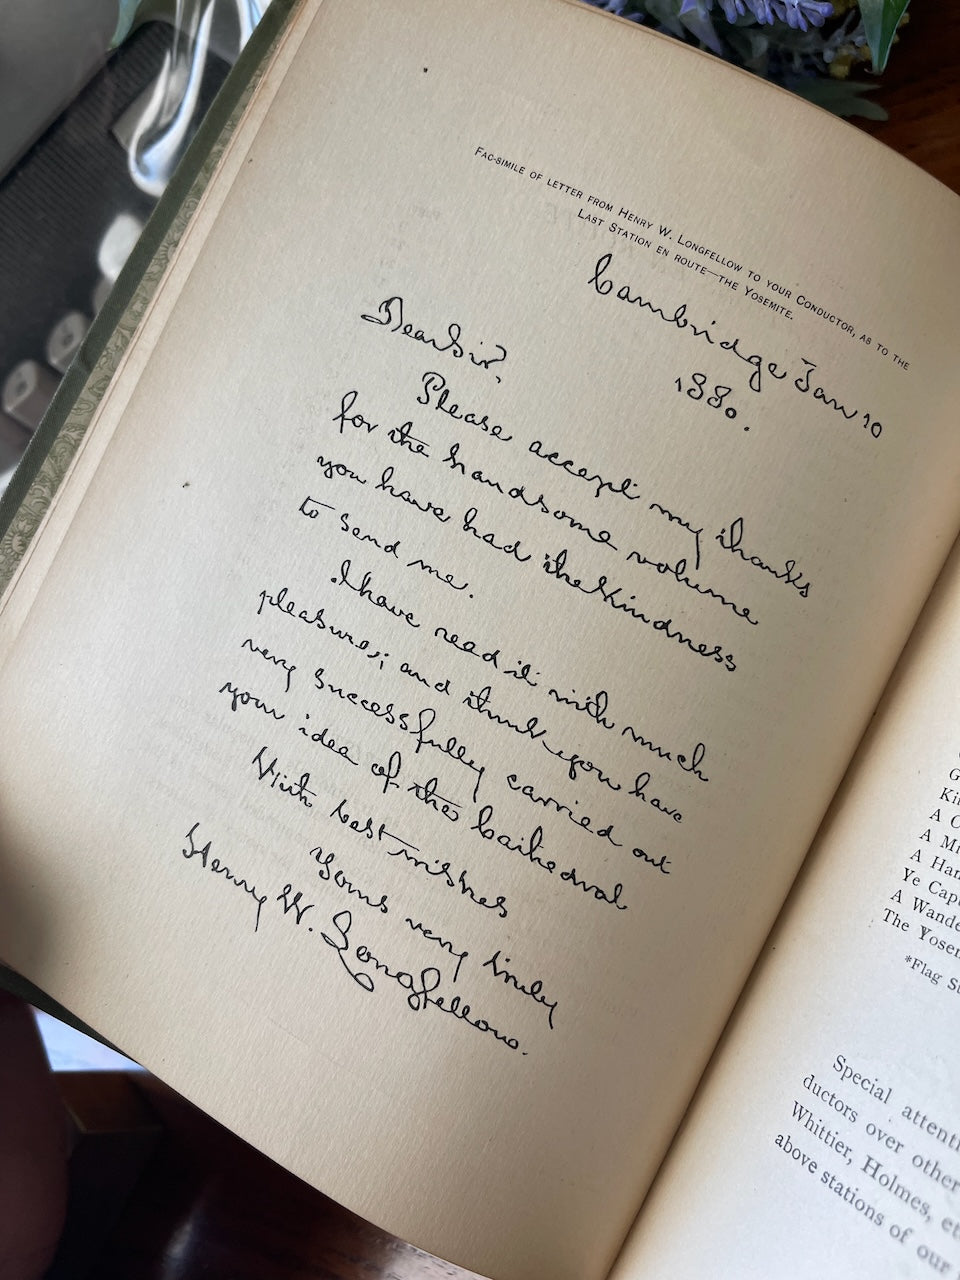 FAC-SIMILE OF LETTER FROM HENRY W. LONGFELLOW TO YOUR CONDUCTOR, AS TO THE
LAST STATION EN ROUTE—THE YOSEMITE.
Cambridge Jan 10
1880.
Dear Sir,
Please accept my thanks
for the handsome volume
you have had the kindness
to send me.
I have read it with much
pleasure; and think you have
very successfully carried out
your idea of the Cathedral
With best wishes
Yours very truly
Henry W. Longfellow.
A
A
A
Ye
A
The
*Flag
Special
ductors over other
Whittier, Holmes,
above stations of our